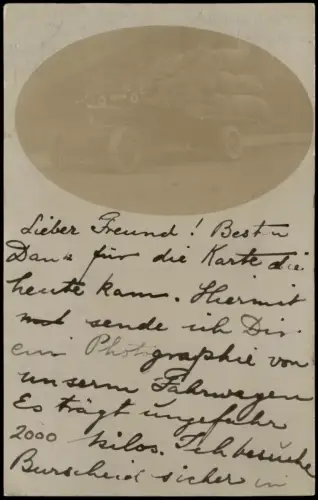 Lieber Freund! Besten
Dank für die Karte die
heute kam. Hiermit
sende ich Dir
ein Photographie von
unserm Fahrwagen
Es trägt ungefähr
2000 kilos. Ich besuche
Burscheid sicher in